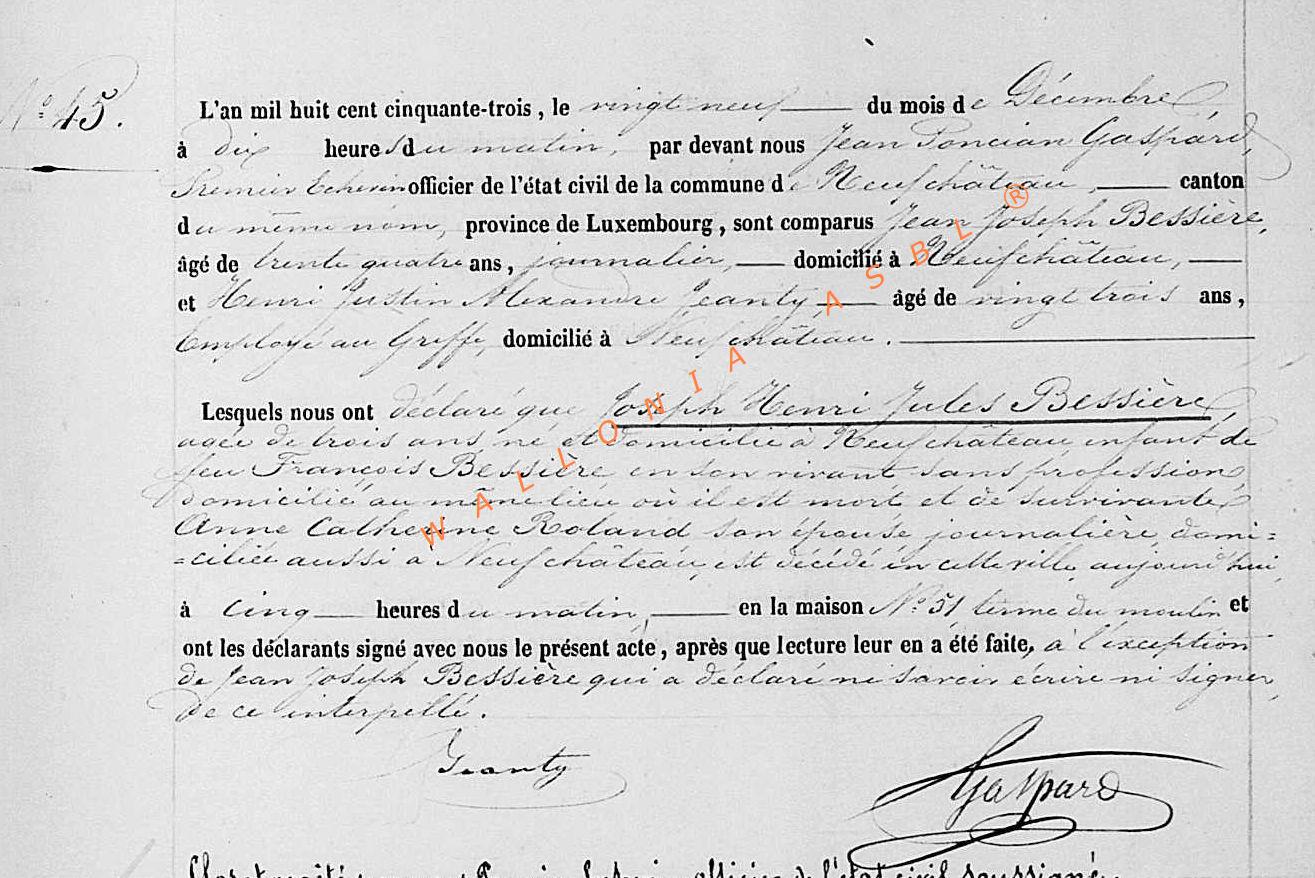 N.° 45.
L'an mil huit cent cinquante-trois, le vingt neuf du mois de Décembre
à dix heures du matin, par devant nous Jean Poncian Gaspard,
Premier Echevin officier de l'état civil de la commune de Neufchâteau, canton
du même nom, province de Luxembourg, sont comparus Jean Joseph Bessière,
âgé de trente quatre ans, journalier, domicilié à Neufchâteau,
et Henri Justin Alexandre Jeanty âgé de vingt trois ans,
Employé au Greffe, domicilié à Neufchâteau.
Lesquels nous ont déclaré que Joseph Henri Jules Bessière,
agée de trois ans, né et domicilié à Neufchâteau, enfant de
feu François Bessière en son vivant sans profession,
domicilié au même lieu où il est mort et de survivante
Anne Catherine Roland son épouse journalière, domi=
=ciliée aussi à Neufchâteau, est décédé en cette ville, aujourd'hui,
à cinq heures du matin, en la maison N.° 51 terme du moulin et
ont les déclarants signé avec nous le présent acte, après que lecture leur en a été faite, à l'exception
de Jean Joseph Bessière qui a déclaré ni savoir écrire ni signer,
de ce interpellé.
Jeanty
Gaspard
officier de l'état civil soussigné.
WALLONIA ASBL ®